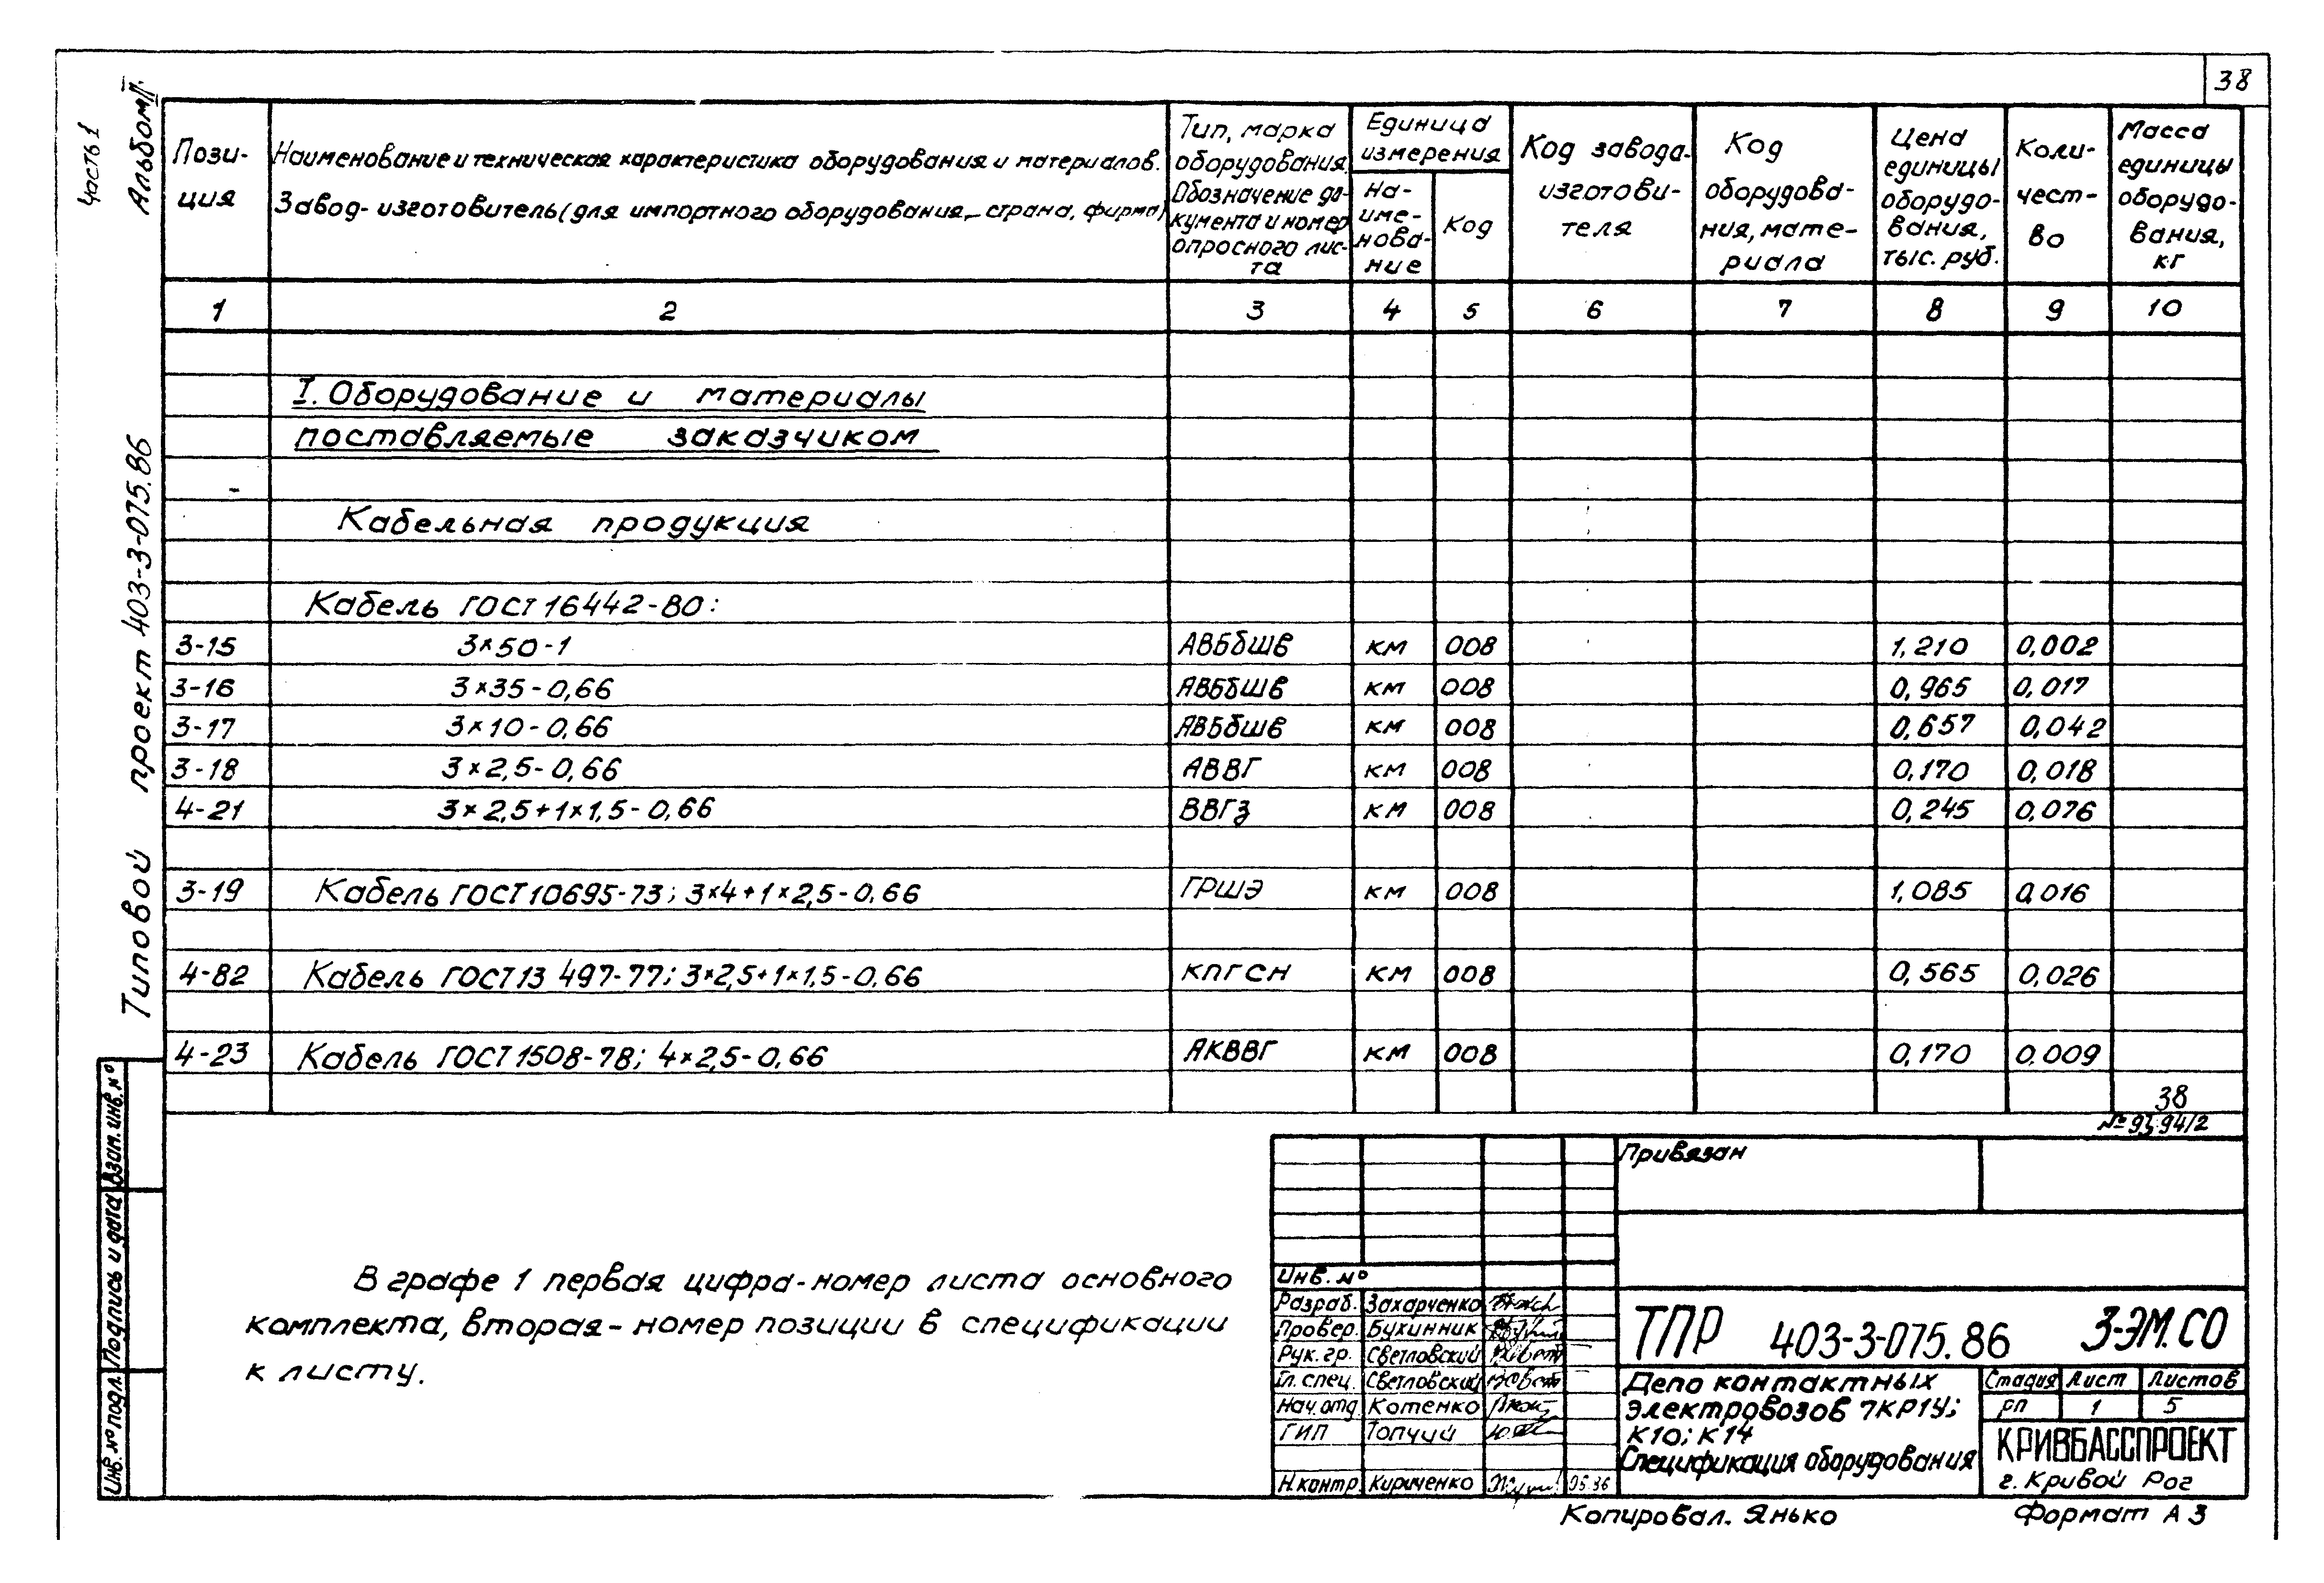 38
Часть 1
Альбом II
Типовой проект 403-3-075.86
Пози-
ция
Наименование и техническая характеристика оборудования и материалов.
Завод-изготовитель (для импортного оборудования,- страна, фирма)
Тип, марка
оборудования.
Обозначение до-
кумента и номер
опросного лис-
та
Единица
измерения
На-
име-
нова-
ние
Код
Код завода-
изготови-
теля
Код
оборудова-
ния, мате-
риала
Цена
единицы
оборудо-
вания,
тыс. руб.
Коли-
чест-
во
Масса
единицы
оборудо-
вания,
кг
1 2 3 4 5 6 7 8 9 10
I. Оборудование и материалы
поставляемые заказчиком
Кабельная продукция
Кабель ГОСТ 16442-80:
3-15 3×50-1 АВБбШв км 008 1,210 0,002
3-16 3×35-0,66 АВБбШв км 008 0,965 0,017
3-17 3×10-0,66 АВБбШв км 008 0,657 0,042
3-18 3×2,5-0,66 АВВГ км 008 0,170 0,018
4-21 3×2,5+1×1,5-0,66 ВВГз км 008 0,245 0,076
3-19 Кабель ГОСТ 10695-73; 3×4+1×2,5-0,66 ГРШЭ км 008 1,085 0,016
4-82 Кабель ГОСТ 13 497-77; 3×2,5+1×1,5-0,66 КПГСН км 008 0,565 0,026
4-23 Кабель ГОСТ 1508-78; 4×2,5-0,66 АКВВГ км 008 0,170 0,009
38
№ 9394/2
В графе 1 первая цифра-номер листа основного
комплекта, вторая - номер позиции в спецификации
к листу.
Взам. инв. №
Подпись и дата
Инв. № подл.
Привязан
Инв. №
Разраб. Захарченко
Провер. Бухинник
Рук. гр. Светловский
Гл. спец. Светловский
Нач. отд. Котенко
ГИП Топчий
Н. контр. Кириченко 05.86
ТПР 403-3-075.86 3-ЭМ.СО
Депо контактных
электровозов 7КР1У;
К10; К14
Спецификация оборудования
Стадия Лист Листов
РП 1 5
КРИВБАССПРОЕКТ
г. Кривой Рог
Копировал. Янько
Формат А3